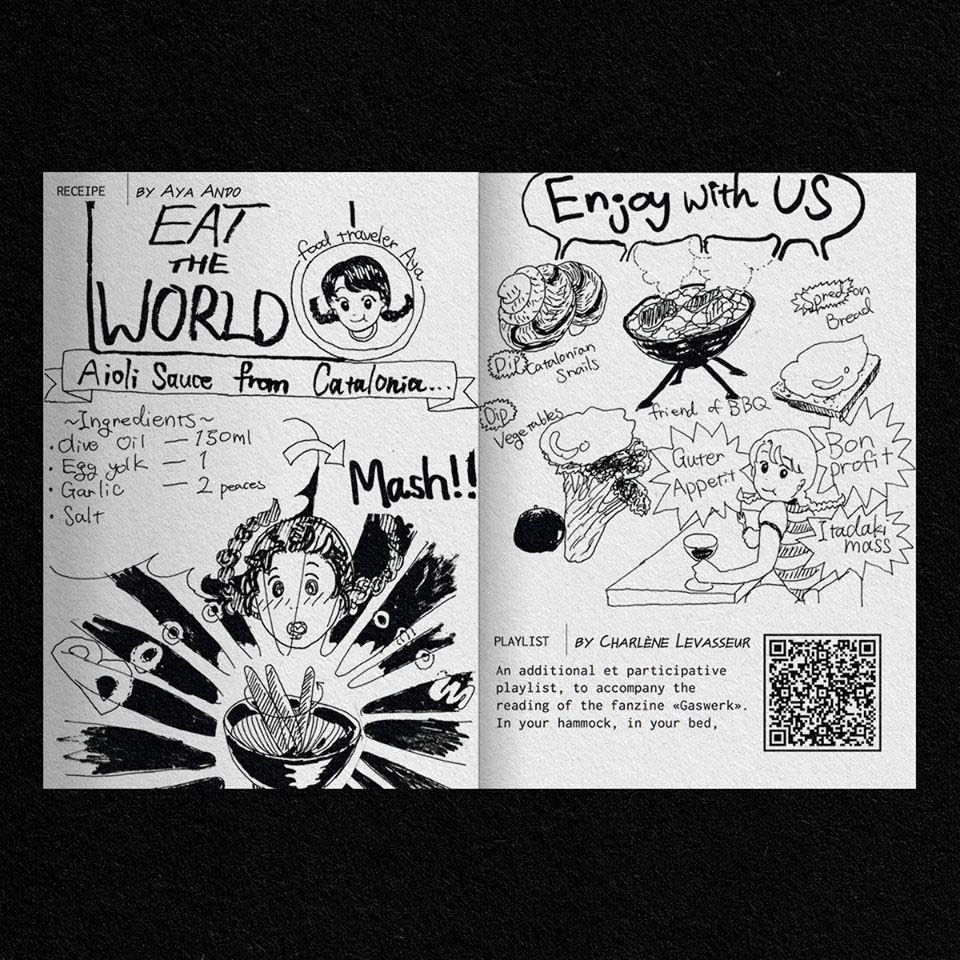 RECEIPE
BY AYA ANDO
EAT
THE
WORLD
food traveler Aya
Aioli Sauce from Catalonia...
~Ingredients~
• Olive Oil — 150ml
• Egg yolk — 1
• Garlic — 2 peaces
• Salt
Mash!!
Enjoy with US
Dip Catalonian
Snails
friend of BBQ
Spred on
Bread
Dip
Vegetables
Guter
Appetit
Bon
profit
Itadaki
mass
PLAYLIST
BY CHARLÈNE LEVASSEUR
An additional et participative
playlist, to accompany the
reading of the fanzine «Gaswerk».
In your hammock, in your bed,